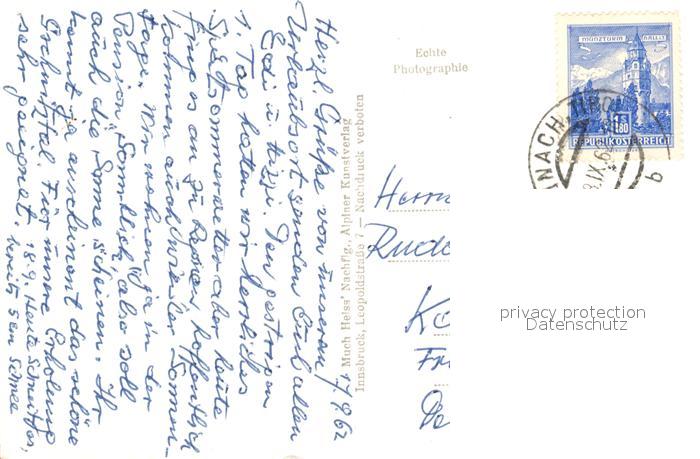 Echte
Photographie
MÜNZTURM HALL i. T.
1.80
REPUBLIK ÖSTERREICH
17.9.62
Herzl. Grüße von unserem
Urlaubsort senden Euch allen
Edi u. Rezzi. Den gestrigen
1. Tag hatten wir herrliches
Spätsommerwetter aber heute
fing es an zu regnen hoffentlich
kommen auch wieder Sonnen-
tage. Wir wohnen ja in der
Pension „Sonnblick“ also soll
auch die Sonne scheinen. Ihr
kennt ja anscheinend das schöne
Gschnitztal. Für unsere Erholung
sehr geeignet.
18.9. Heute schneit es,
bereits 5 cm Schnee
Much Heiss' Nachflg., Alpiner Kunstverlag
Innsbruck, Leopoldstraße 7 — Nachdruck verboten
Herrn
privacy protection
Datenschutz